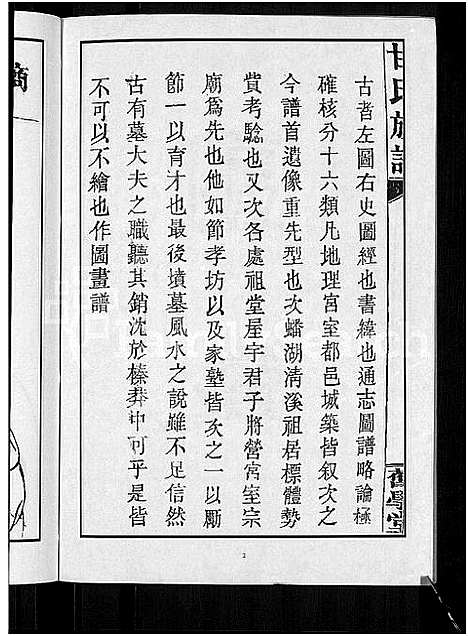 甘氏族譜
古者左圖右史圖經也書緯也通志圖譜略論極
確核分十六類凡地理宮室都邑城築皆叙次之
今譜首遺像重先型也次蟠湖清溪祖居標體勢
貲考騐也又次各處祖堂屋宇君子將營宮室宗
廟爲先也他如節孝坊以及家塾皆次之一以勵
節一以育才也最後墳墓風水之說雖不足信然
古有墓大夫之職聽其銷沈於榛莽中可乎是皆
不可以不繪也作圖畫譜
舊學堂
2